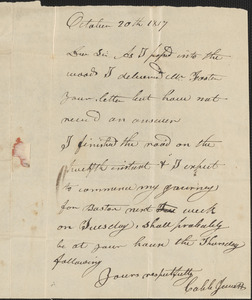 October 20th 1817
Dear Sir As I passed into the
woods I delivered Mr Foster
your letter but have not
recie'd an answer
I finished the road on the
twelfth instant & I expect
to commence my journey
for Boston next week
on Tuesday, shall probably
be at your house the Thursday
following
Yours respectfully
Caleb Jewett